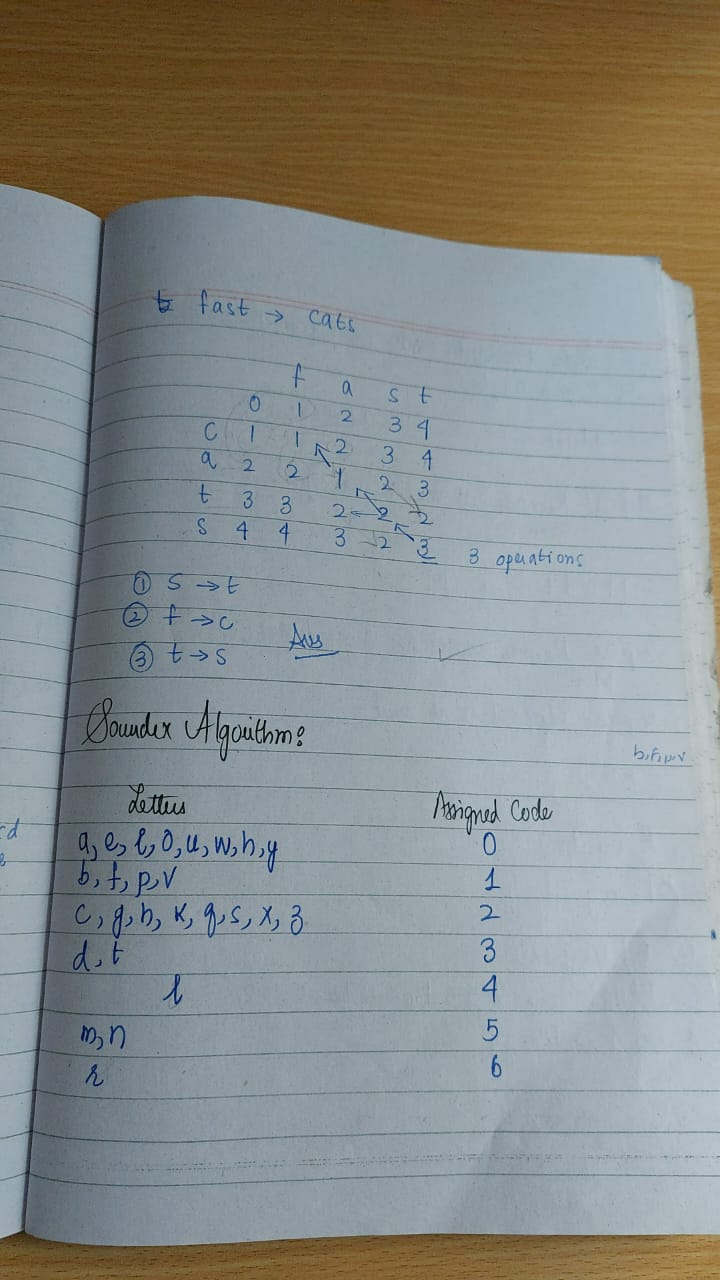 fast → cats
f a s t
0 1 2 3 4
C 1 1 2 3 4
a 2 2 1 2 3
t 3 3 2 2 2
S 4 4 3 2 3 3 operations
① S → t
② f → c
③ t → s Ans
Soundex Algorithm:
b,f,p,v
Letters Assigned Code
a, e, i, o, u, w, h, y 0
b, f, p, v 1
c, g, h, k, q, s, x, z 2
d, t 3
l 4
m, n 5
r 6